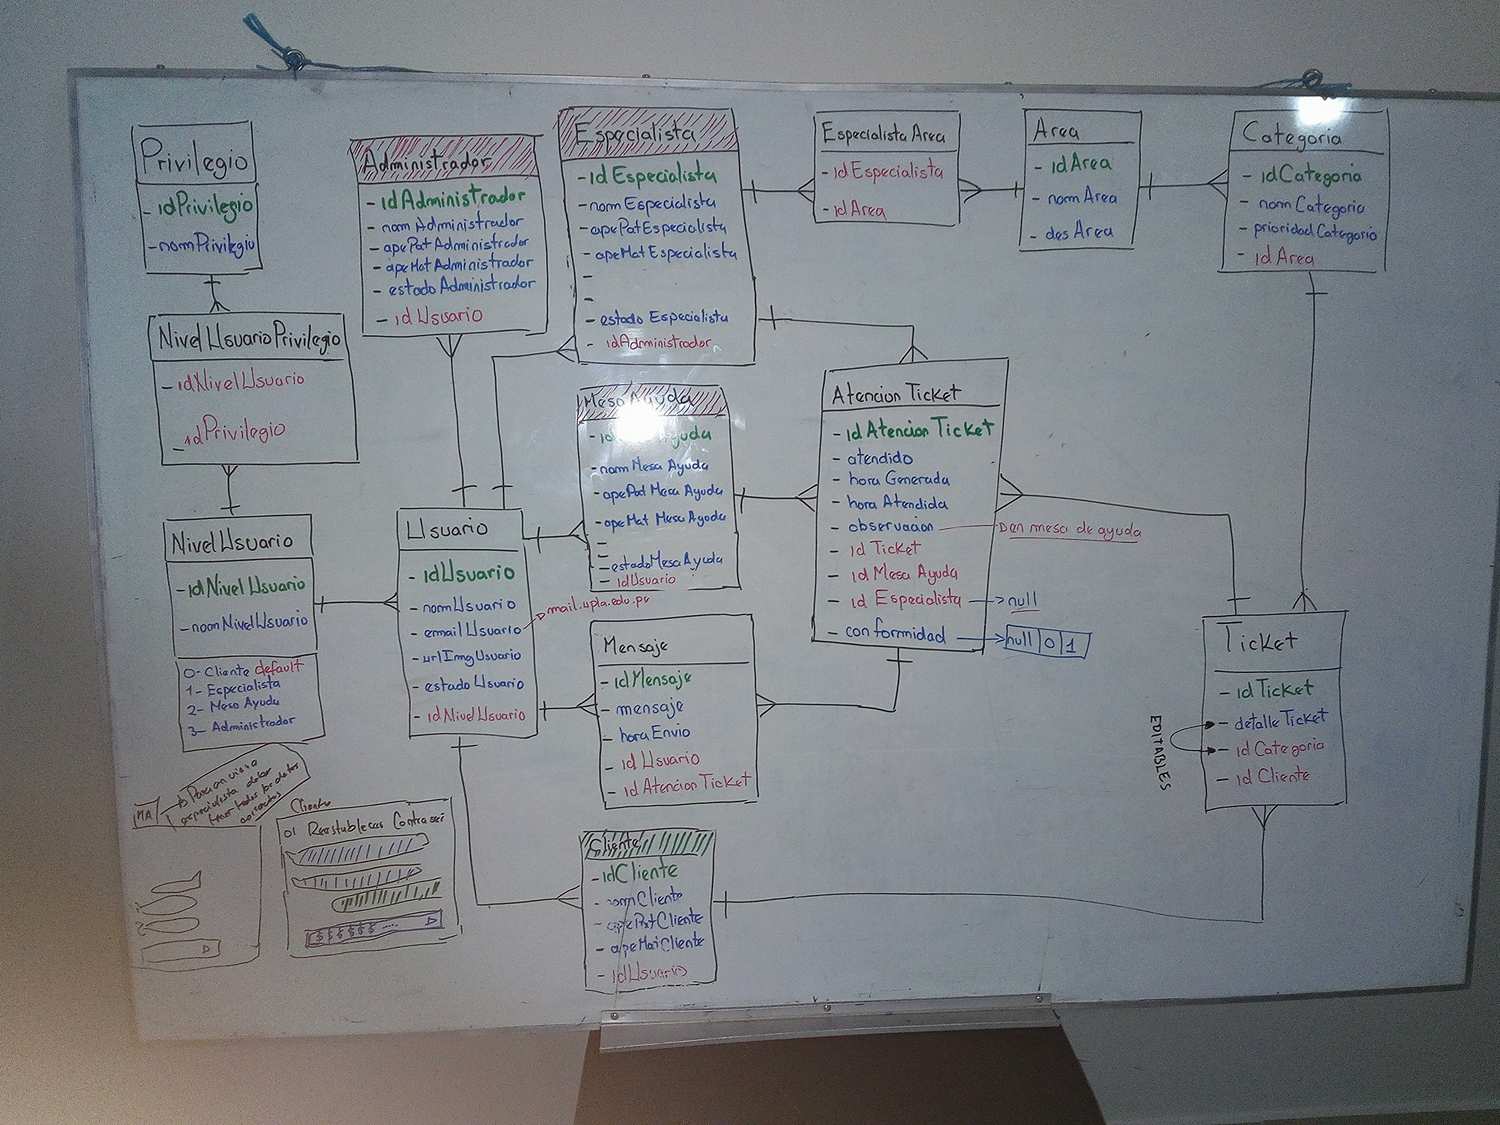 Privilegio
- idPrivilegio
- nomPrivilegio
Nivel Usuario Privilegio
- idNivel Usuario
- idPrivilegio
Nivel Usuario
- idNivel Usuario
- nomNivel Usuario
0- Cliente default
1- Especialista
2- Mesa Ayuda
3- Administrador
MA
Administrador
- idAdministrador
- nom Administrador
- apePat Administrador
- apeMat Administrador
- estado Administrador
- id Usuario
Especialista
- id Especialista
- nom Especialista
- apePat Especialista
- apeMat Especialista
-
-
- estado Especialista
- idAdministrador
Especialista Area
- id Especialista
- id Area
Area
- id Area
- nom Area
- des Area
Categoria
- id Categoria
- nom Categoria
- prioridad Categoria
- id Area
Mesa Ayuda
- nom Mesa Ayuda
- apePat Mesa Ayuda
- apeMat Mesa Ayuda
-
-
- estado Mesa Ayuda
- idUsuario
Atencion Ticket
- id Atencion Ticket
- atendido
- hora Generada
- hora Atendida
- observacion
mesa de ayuda
- id Ticket
- id Mesa Ayuda
- id Especialista → null
- conformidad → null | 0 | 1
Usuario
- idUsuario
- nomUsuario
- email Usuario
mail.upla.edu.pe
- urlImgUsuario
- estado Usuario
- id Nivel Usuario
Mensaje
- id Mensaje
- mensaje
- hora Envio
- id Usuario
- id Atencion Ticket
Ticket
- id Ticket
- detalle Ticket
- id Categoria
- id Cliente
EDITABLES
Cliente
01 Reestablecer
Cliente
- idCliente
- nom Cliente
- apePat Cliente
- apeMat Cliente
- idUsuario